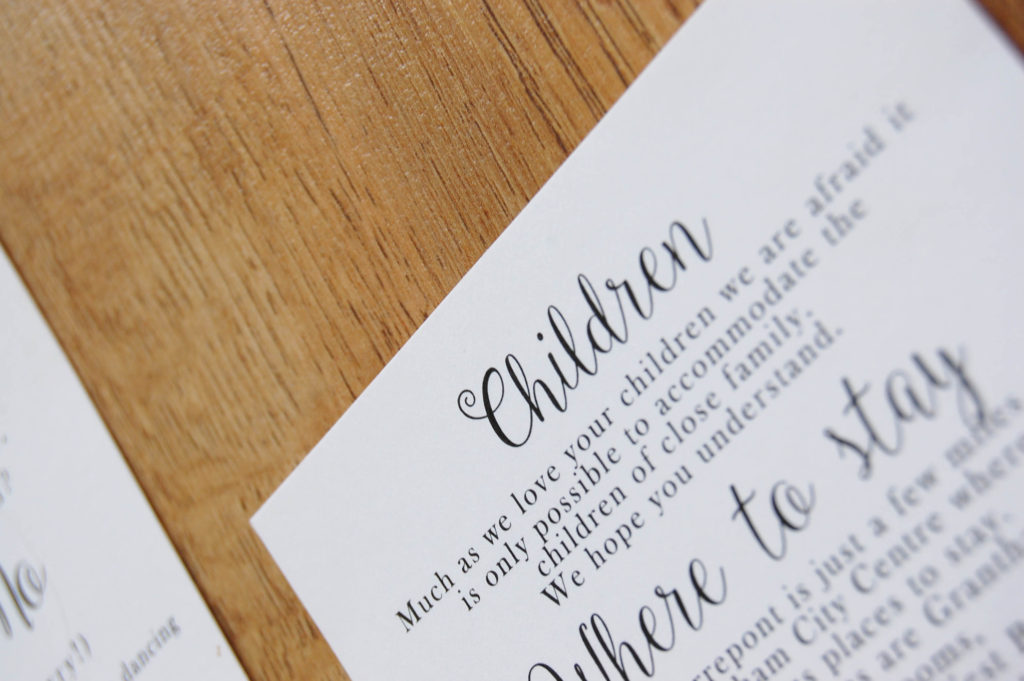 Children
Much as we love your children we are afraid it
is only possible to accommodate the
children of close family.
We hope you understand.
Where to stay
rrepont is just a few miles
ham City Centre where
s places to stay.
s are Granth
ooms,
dancing